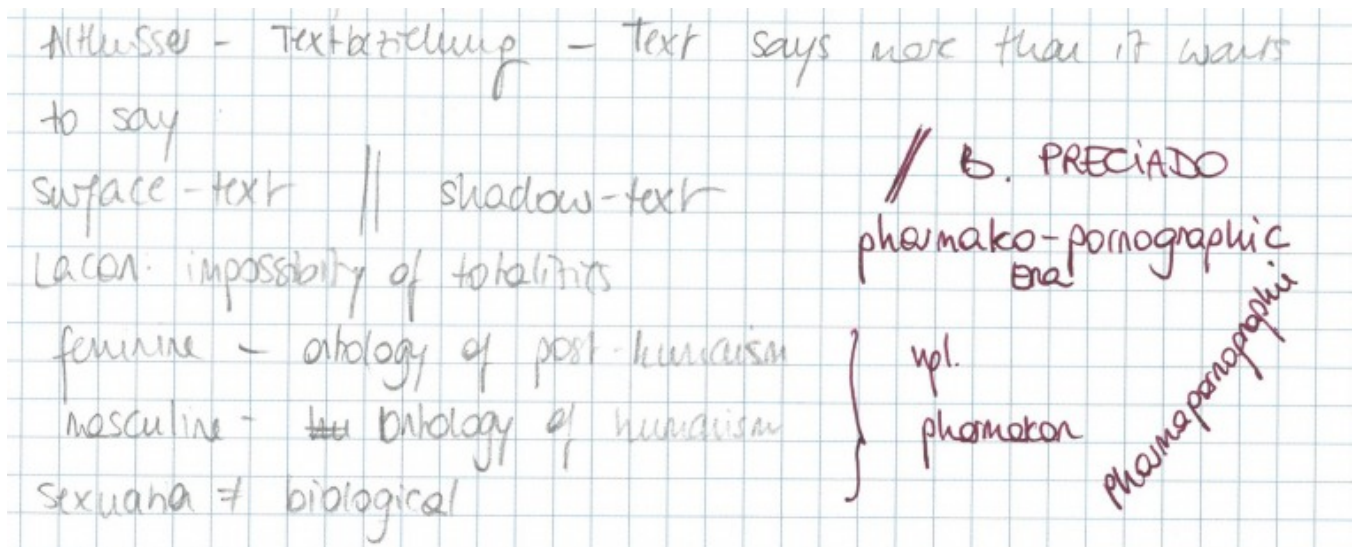 Althusser - Textbeziehung - Text says more than it wants
to say
surface-text || shadow-text
Lacan: impossibility of totalities
feminine - ontology of post-humanism
masculine - ontology of humanism
sexuaria ≠ biological
// B. PRECIADO
pharmako-pornographic
Era
pharmakon
pharmapornographic